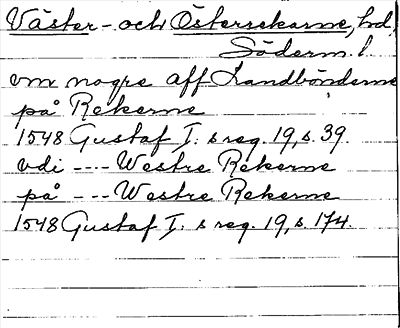 Väster- och Österrekarne, hd,
Söderm. l.
om nogre aff Landbönderne
på Rekerne
1548 Gustaf I:s reg. 19, s. 39.
vdi --- Westre Rekerne
på --- Westre Rekerne
1548 Gustaf I:s reg. 19, s. 174.